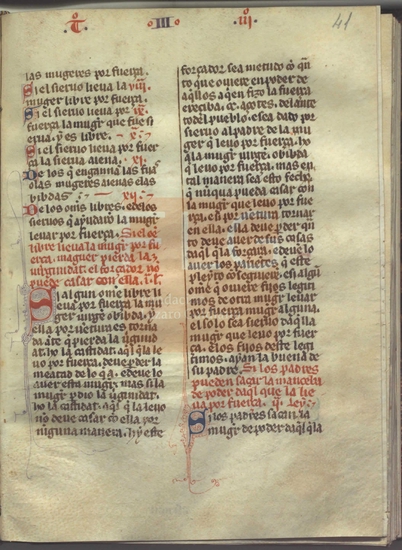 T III III 41
las mugeres por fuerça.
Si el sieruo lieua la
muger libre por fuerça.
Si el sieruo lieua por
fuerça la mugr que fue si
erua, τ es libre. x.
Si el sieruo lieua por fuer
ça la sierua aiena. xi.
De los q engannan las fiias
o las mugeres aienas e las
bibdas. xii.
De los omes libres, e de los
sieruos q aiudaro la mugr
leuar por fuerça. Si el oē
libre lieua la mugr por fu
erça, maguer pierda la
uirginidat; el forçador no
puede casar con ella. i. l.
Si algun ome libre li
eua por fuerça la mu
ger uirgē o bibda, τ
ella por uētura es torna
da ante q pierda la uginid
at. ho la castidat, aql q la le
uo por fuerça, deue perder la
meatad de lo q a. e deue lo
auer esta mugr. mas si la
mugr pdio la uginidat,
ho la castidat. aql q la leuo
no deue casar cō ella por
ninguna manera. hy este
forçador sea metudo cō qn
to que ouiere en poder de
aqllos a quen fizo la fuerça
e reciba. cc. açotes, delante
todel pueblo. e sea dado por
sieruo al padre de la mu
ger q leuo por fuerça, ho
a la mugr uirgē, o bibda
q leuo por fuerça. mas en
tal manera sea esto fecho,
q nūqua pueda casar con
la mugr que leuo por fue
rça. e si por uentura tornar
en ella. ella deue pder qn
to deue auer de sus cosas
daql q la forçara. e deue lo
auer los parientes q este
pleyto cōseguieren. e si algū
ome q ouiere fijos legiti
mos de otra mugr leuar
por fuerça mugr alguna,
el solo sea sieruo daqlla
mugr que leuo por fuer
ça. e los fijos deste legi
timos. ayan la buena de
su padre. Si los padres
pueden sacar la manceba
de poder daql que la lie
ua por fuerça. ii. ley.
Si los padres sacan la
mugr de poder daql q la